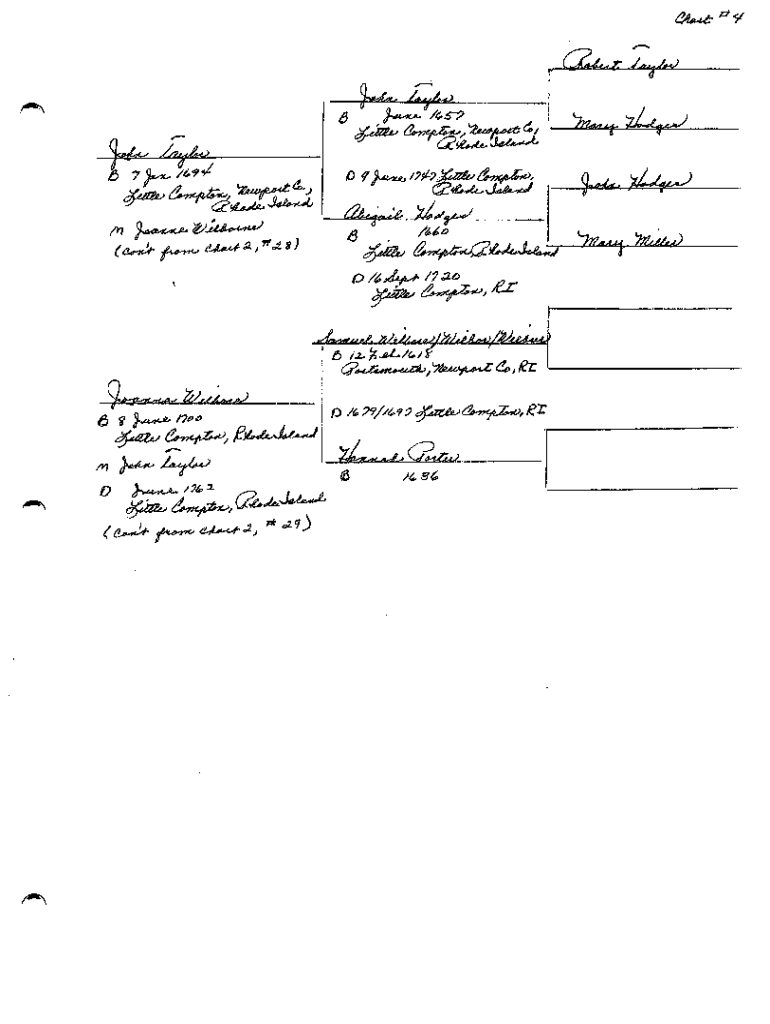 Chart # 4
Robert Taylor
John Taylor
B June 1657
Little Compton, Newport Co,
Rhode Island
Mary Hodges
John Taylor
B 7 Jan 1694
Little Compton, Newport Co,
Rhode Island
M Joanna Wilbourne
(con't from Chart 2, # 28)
D 9 June 1747 Little Compton,
Rhode Island
John Hodges
Abigail Hodges
B 1660
Little Compton, Rhode Island
Mary Miller
D 16 Sept 1720
Little Compton, RI
Samuel Wilbore/Wilbor/Wilbur
B 12 Feb 1618
Portsmouth, Newport Co, RI
Joanna Wilbore
B 8 June 1700
Little Compton, Rhode Island
M John Taylor
D June 1762
Little Compton, Rhode Island
(con't from chart 2, # 29)
D 1679/1697 Little Compton, RI
Hannah Porter
B 1636